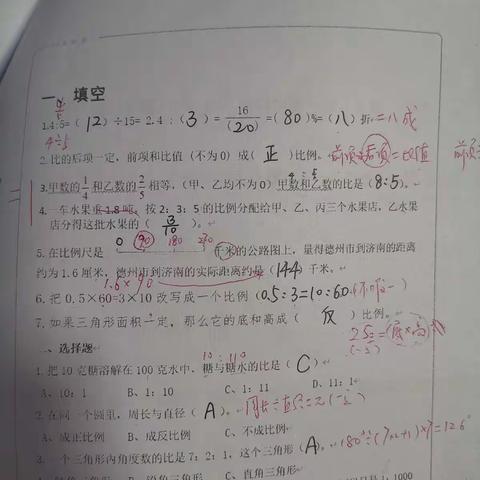 一、填空
4/5
1.4:5=( 12 )÷15=2.4:( 3 )=16/(20)=( 80 )%=( 八 )折=八成
4÷5
2.比的后项一定，前项和比值（不为0）成（ 正 ）比例。 前项:后项=比值
3.甲数的1/4和乙数的2/5相等，（甲、乙均不为0）甲数和乙数的比是（8:5）。
4.一车水果重1.8吨，按2:3:5的比例分配给甲、乙、丙三个水果店，乙水果
店分得这批水果的（ 3/10 ）。
0 90 180 270
5.在比例尺是 千米的公路图上，量得德州市到济南的距离
约为1.6厘米，德州市到济南的实际距离约是（144）千米。
1.6×90
6.把0.5×60=3×10改写成一个比例（0.5:3=10:60）
7.如果三角形面积一定，那么它的底和高成（ 反 ）比例。
2S=(底×高)
(一定)
、选择题
10:110
1.把10克糖溶解在100克水中，糖与糖水的比是（ C ）
A、10:1 B、1:10 C、1:11 D、11:1
2.在同一个圆里，周长与直径（ A ）。 周长÷直径=π(一定)
A、成正比例 B、成反比例 C、不成比例
3.一个三角形内角度数的比是7:2:1，这个三角形（ A ）。180°÷(7+2+1)×7=126°
C、直角三角形
1:1000